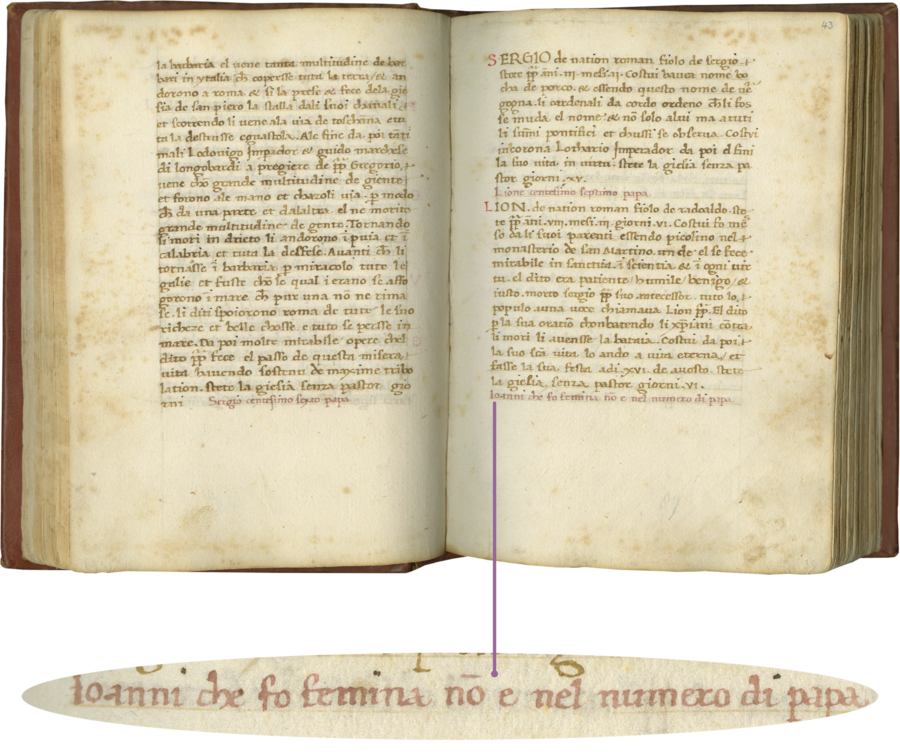 la barbaria el uene tanta multitudine de bar
bari in ytalia ch coperse tuta la terra / et an
dorono a roma et si la prese et fece dela gie
sia de san piero la stalla dali suoi chauali /
et scorrendo li uene ala uia de toschana
ta la destrusse
mali Lodouigo Imperador et guido marchese
di longobardi a pregiere de pp Gregorio
uene cho grande multitudine de giente
et forono ale mano et chazoli uia . p modo
ch da una parte et dalaltra el ne morite
grande multitudine de gente. Tornando
li mori in drieto li andorono i puia et i
calabria et tuta la desfese. Auanti ch li
tornasse i barbaria p miracolo tute le
galie et fuste cho le qual i erano se affo
gorono i mare ch pur una nō ne rima
se. li disti spoiorono roma de tute le suo
richeze et belle chosse e tuto se persse in
mare. Da poi molte mirabile opere chel
dito pp fece el passo de questa misera
uita hauendo sostenu de maxime tribo
lation. stete la giesia senza pastor gio
rni Sergio centesimo sexto papa
43
SERGIO de nation roman fiolo de sergio
stete pp āni .iii. mesi .ii. Costui haueа nome bo
cha de porco. et essendo questo nome de ue
gogna. li cardenali da cordo ordeno ch li fos
se muda el nome et nō solo alui ma a tuti
li sumi pontifici et chussi se obserua. Costui
incorona Lothario Imperador da poi el fini
la suo uita in uirtu. stete la giesia senza pa
stor giorni .xv.
Lione centesimo septimo papa
LION. de nation roman fiolo de radoaldo ste
te pp āni .viii. mesi .iii. giorni .vi. Costui fo me
so dali suoi parenti essendo picolino nel
monasterio de san Martino. un de el se fece
mirabile in sanctita. i scientia et i ogni uir
tu. el dito era patiente / humile / benigo / et
iusto. morto sergio pp suo antecessor. tuto lo
populo auna uoce chiamaua Lion pp. El dito
p la sua oratiō chonbatendo li xpiani cōtra
li mori li auensse la bataia. Costui da poi
la suo scā uita lo ando a uita eterna / et
fasse la sua festa adi .xvi. de auosto. stete
la giesia senza pastor giorni .vi.
Ioanni che fo femina nō e nel numero di papa
Ioanni che fo femina nō e nel numero di papa